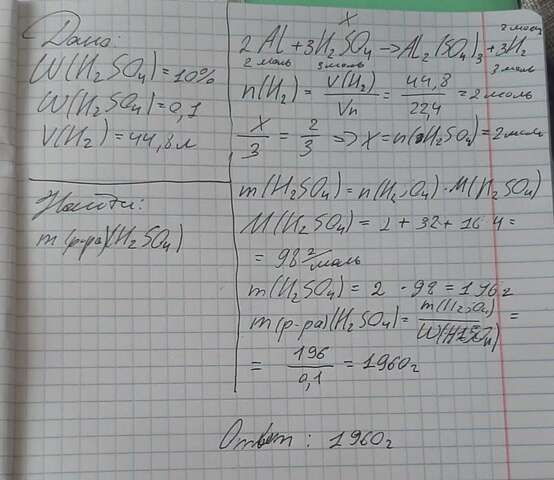 Дано:
W(H₂SO₄)=10%
W(H₂SO₄)=0,1
V(H₂)=44,8л
Найти:
m(р-ра)(H₂SO₄)
X 2 моль
2Al+3H₂SO₄→Al₂(SO₄)₃+3H₂
2 моль 3 моль 3 моль
n(H₂)=V(H₂)/Vn=44,8/22,4=2 моль
X/3=2/3⇒X=n(H₂SO₄)=2 моль
m(H₂SO₄)=n(H₂SO₄)·M(H₂SO₄)
M(H₂SO₄)=2+32+16·4=
=98 г/моль
m(H₂SO₄)=2·98=196г
m(р-ра)(H₂SO₄)=m(H₂SO₄)/W(H₂SO₄)=
=196/0,1=1960г
Ответ: 1960г